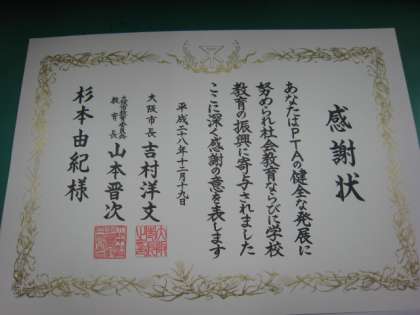 感謝状
あなたはPTAの健全な発展に
努められ社会教育ならびに学校
教育の振興に寄与されました
ここに深く感謝の意を表します
平成二十八年十二月十九日
大阪市長 吉村洋文
大阪市教育委員会
教育長 山本晋次
杉本由紀様